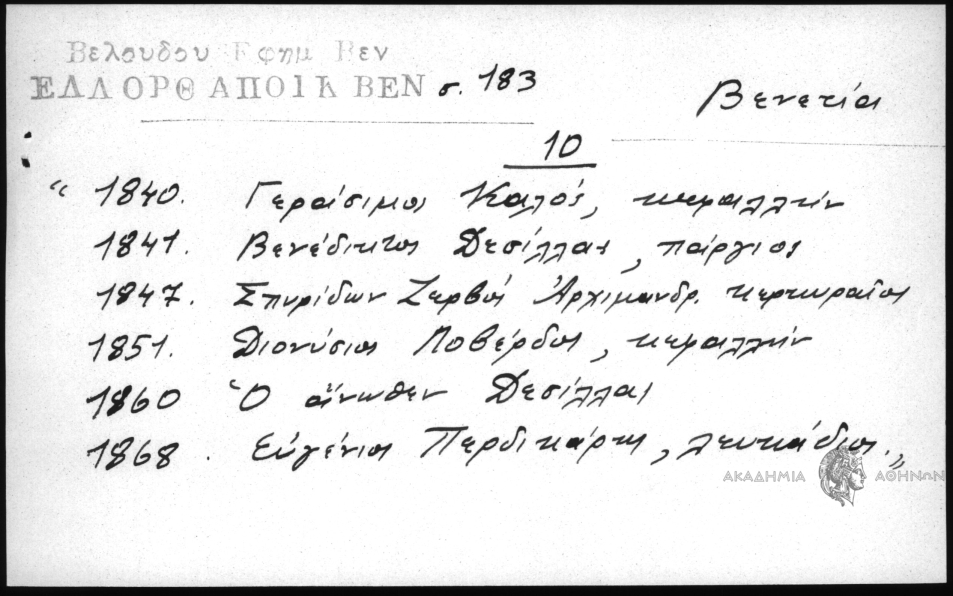 Βελουδου Εφημ Βεν
ΕΛΛ ΟΡΘ ΑΠΟΙΚ ΒΕΝ σ. 183
Βενετία
10
“ 1840. Γεράσιμος Καλός, κεφαλλήν
1841. Βενέδικτος Δεσίλλας, πάργιος
1847. Σπυρίδων Ζερβός Ἀρχιμανδρ. κερκυραῖος
1851. Διονύσιος Λοβέρδος, κεφαλλήν
1860 Ὁ ἄνωθεν Δεσίλλας
1868. Εὐγένιος Περδικάρης, λευκάδιος.„
ΑΚΑΔΗΜΙΑ ΑΘΗΝΩΝ